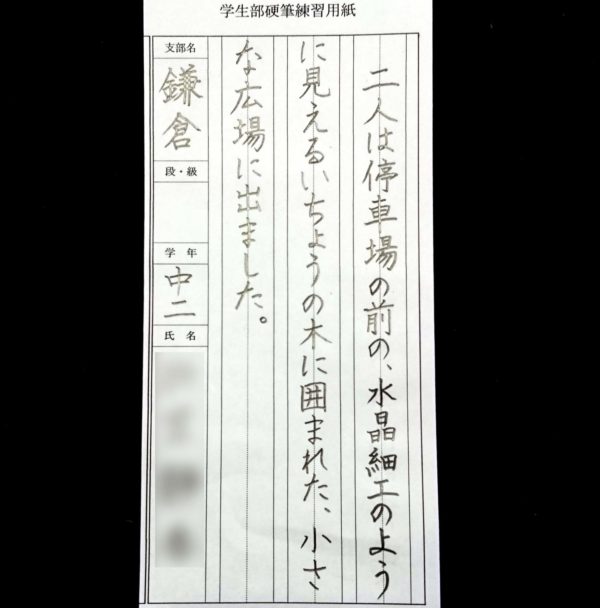 学生部硬筆練習用紙
二人は停車場の前の、水晶細工のよう
に見えるいちょうの木に囲まれた、小さ
な広場に出ました。
支部名
鎌倉
段・級
学年
中二
氏名